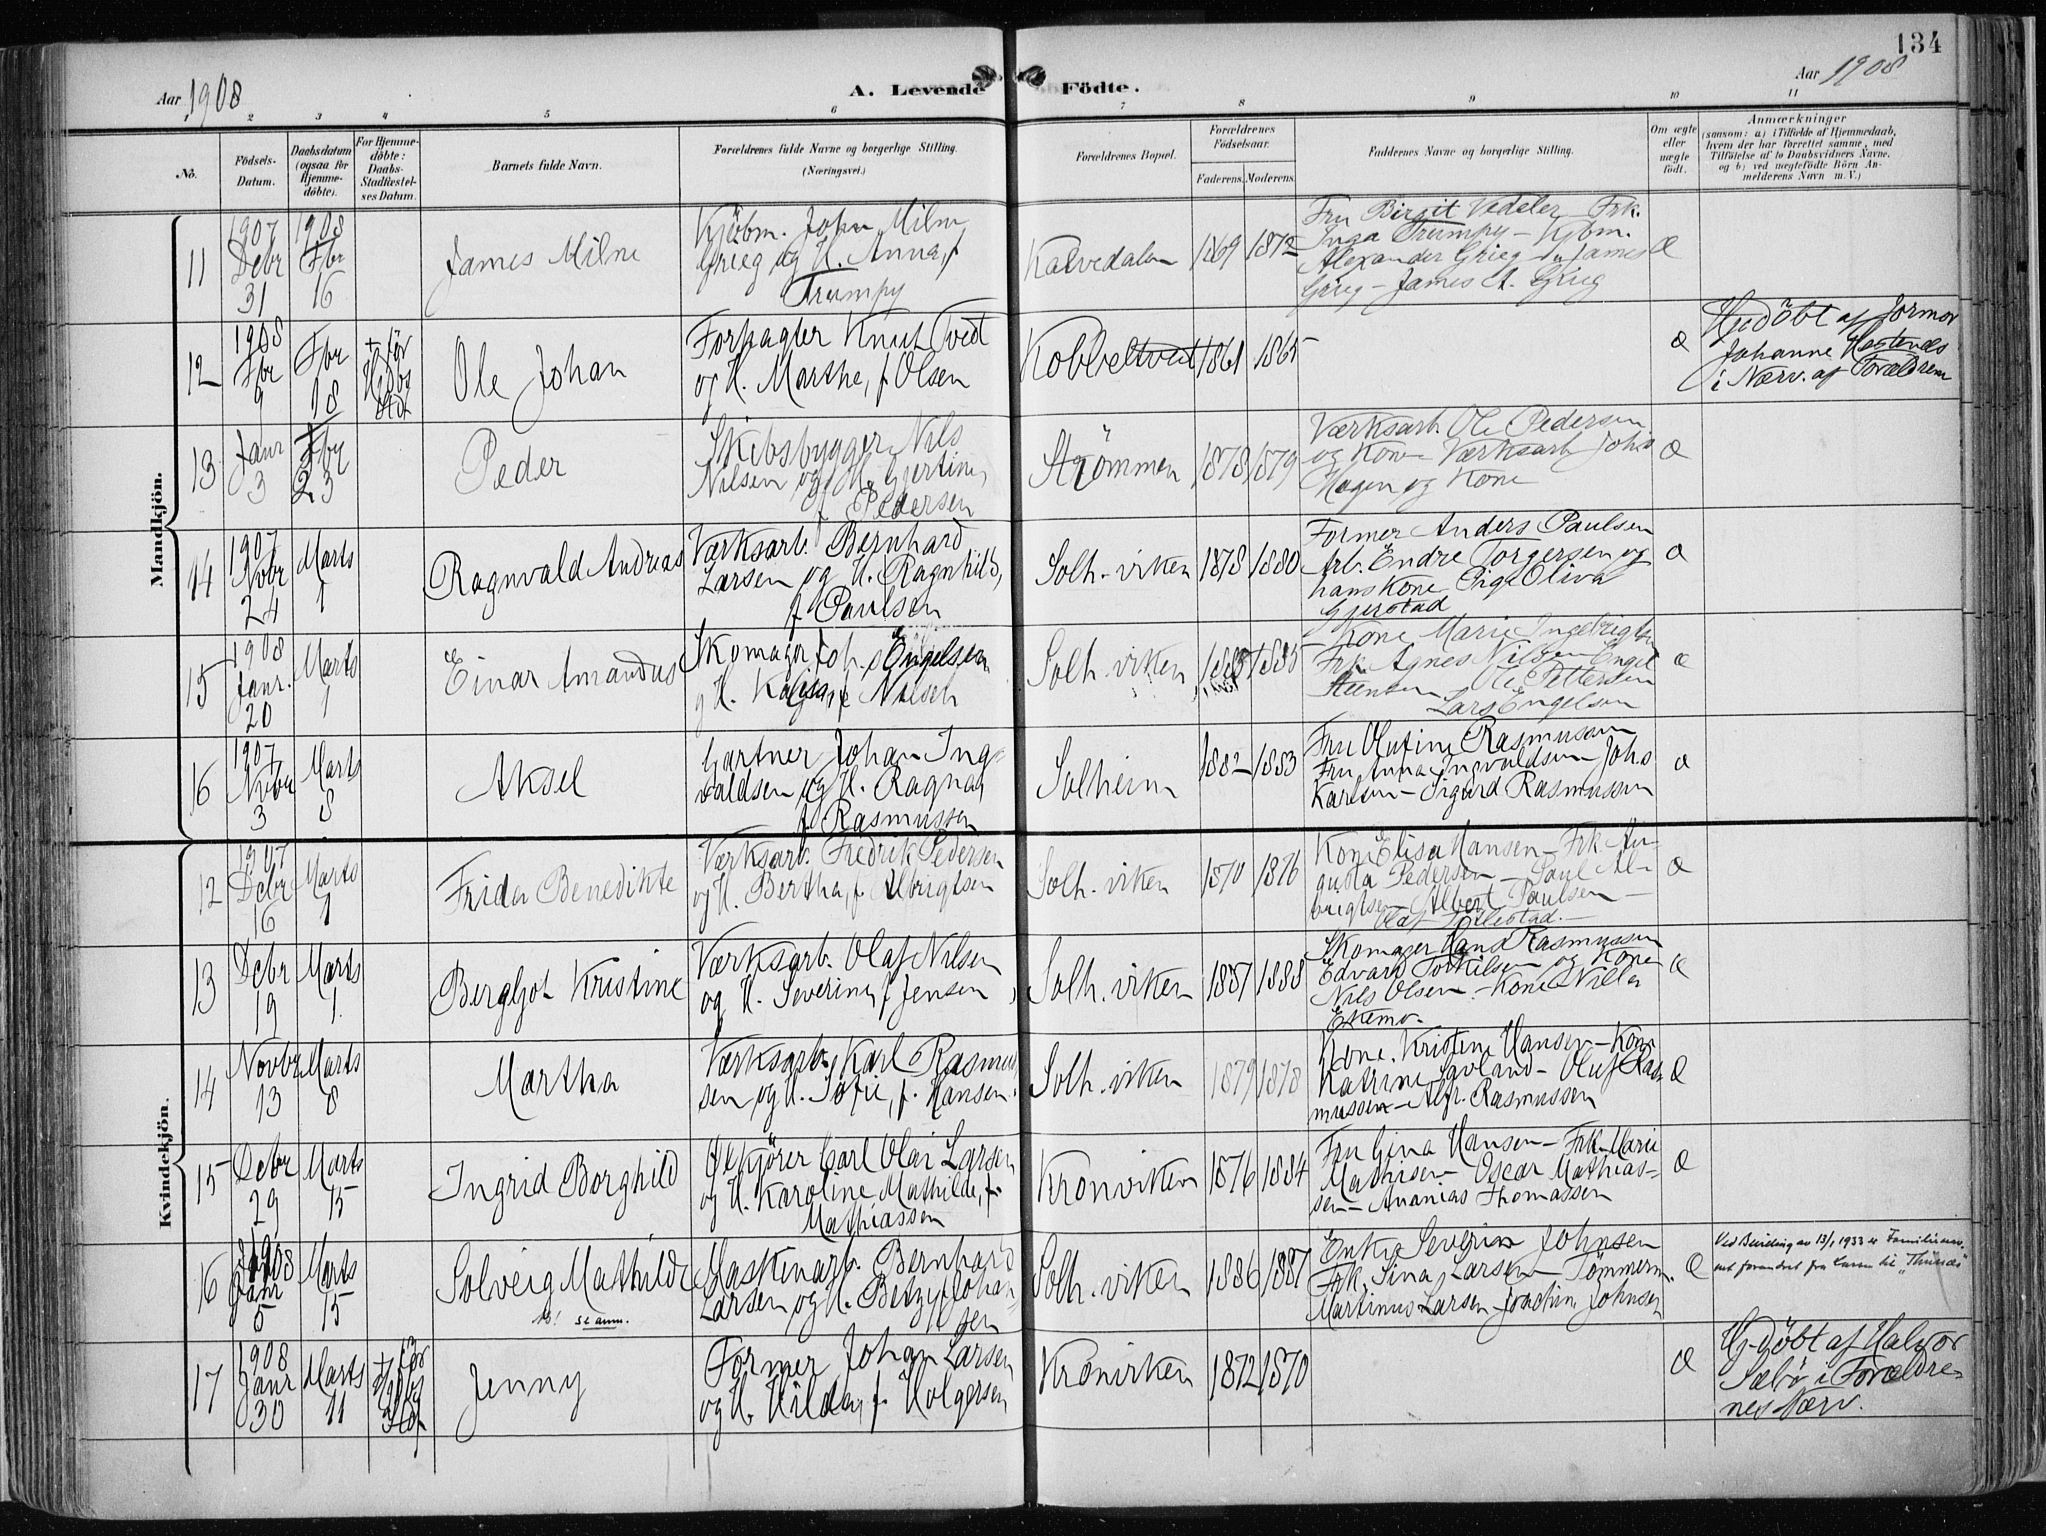 134
Aar 1908
A. Levende Födte.
Aar 1908
1 2 3 4 5 6 7 8 9 10 11
No.
Födsels-Datum.
Daabsdatum (ogsaa for Hjemmedöbte).
For Hjemmedöbte: Daabs-Stadfæstelses Datum.
Barnets fulde Navn.
Forældrenes fulde Navne og borgerlige Stilling. (Næringsvei.)
Forældrenes Bopæl.
Forældrenes Födselsaar.
Faderens. Moderens.
Faddernes Navne og borgerlige Stilling.
Om ægte eller uægte født.
Anmærkninger
(saasom: a) i Tilfælde af Hjemmedaab, hvem der har forrettet samme, med Tilföielse af to Daabsvidners Navne, og b) ved uægtefödte Börn Anmelderens Navn m.V.)
Mandkjön.
11
1907 Debr 31
1908 Fbr 16
James Milne
Kjöbm. John Milne
Grieg og H. Anna, f.
Trumpy
Kalvedalen
1869 1872
Fru Birgit Vedeler - Frk.
Inga Trumpy - Kjbm.
Alexander Grieg - James
Grieg - James A. Grieg
Æ
12
1908 Fbr 9
Fbr 18
+ før
Ole Johan
Forpagter Knut Tvedt
og H. Marthe, f. Olsen
Kobbeltvedt
1861 1865
Æ
Hjdöbt af Jormor
Johanne Hestenæs
i Nærv. af Forældrene
13
Janr 3
Fbr 23
Peder
Skibsbygger Nils
Nilsen og H. Gjertine,
f. Pedersen
Strömmen
1878 1879
Værksarb. Ole Pedersen
og Kone - Værksarb. Johs
Hagen og Kone
Æ
14
1907 Novbr 24
Marts 1
Ragnvald Andreas
Værksarb. Bernhard
Larsen og H. Ragnhild,
f. Paulsen
Solh. viken
1878 1880
Former Anders Paulsen
Arb. Endre Torgersen og
hans Kone Pige Oliva
Gjerstad
Æ
15
1908 Janr. 20
Marts 1
Einar Amandus
Skomager Joh. Engelsen
og H. Kaisa, f. Nilsen
Solh. viken
1885
Kone Marie Ingebrigtsen
Frk Agnes Nilsen Engel
Steensen Ole Pettersen
Lars Engelsen
Æ
16
1907 Novbr 3
Marts 8
Aksel
Gartner Johan Ing-
valdsen og H. Ragna,
f. Rasmussen
Solheim
1882 1883
Fru Olufine Rasmussen
Fru Anna Ingvaldsen - Johs
Karlsen - Sigurd Rasmussen
Æ
Kvindekjön.
12
1907 Debr 16
Marts 1
Frida Benedikte
Værksarb. Fredrik Pedersen
og H. Bertha, f. Albrigtsen
Solh. viken
1870 1876
Kone Elisa Hansen - Frk Au-
gusta Pedersen - Paul Al-
brigtsen - Albert Paulsen -
Æ
13
Debr 19
Marts 1.
Bergljot Kristine
Værksarb. Olaf Nilsen
og H. Severine, f. Jensen
Solh. viken
1887 1888
Skomager Hans Rasmussen
Edvard Torkilsen og Kone
Nils Olsen - Kone Nilla
Ekemo.
Æ
14
Novbr 13
Marts 8
Martha
Værksarb. Karl Rasmus-
sen og H. Sofie, f. Hansen.
Solh. viken
1879 1878
Kone Kristine Hansen - Kone
Katrine Søvland - Oluf Ras-
mussen - Alfr. Rasmussen
Æ
15
Debr 29
Marts 15
Ingrid Borghild
Carl Olai Larsen
og H. Karoline Mathilde, f.
Mathiassen
Kronviken
1876 1884
Fru Gina Hansen - Frk Marie
Mathisen - Oscar Mathias-
sen - Ananias Thomassen
Æ
16
1908 Janr 5
Marts 15
Solveig Mathilde
NB! se anm.
Maskinarb. Bernhard
Larsen og H. Betzy, f. Johan-
sen
Solh. viken
1886 1887
Enke Severin Johnsen
Frk. Sina Larsen - Tömmerm.
Martinus Larsen - Joachim Johnsen
Æ
Ved Bevilling av 13/1 1933 er Familienav-
net forandret fra Larsen til "Thunæs"
17
1908 Janr 30
Marts 11
+ før
Jenny
Former Johan Larsen
og H. Hilda, f. Holgersen
Kronviken
1872 1870
Æ
Hj.döbt af Halvor
Sæbø i Forældre-
nes Nærv.